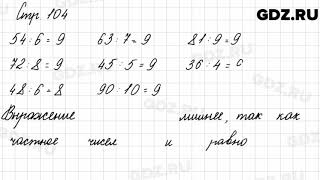 Стр. 104
GDZ.RU
54 : 6 = 9 63 : 7 = 9 81 : 9 = 9
72 : 8 = 9 45 : 5 = 9 36 : 4 = 9
48 : 6 = 8 90 : 10 = 9
Выражение лишнее, так как
частное чисел и равно